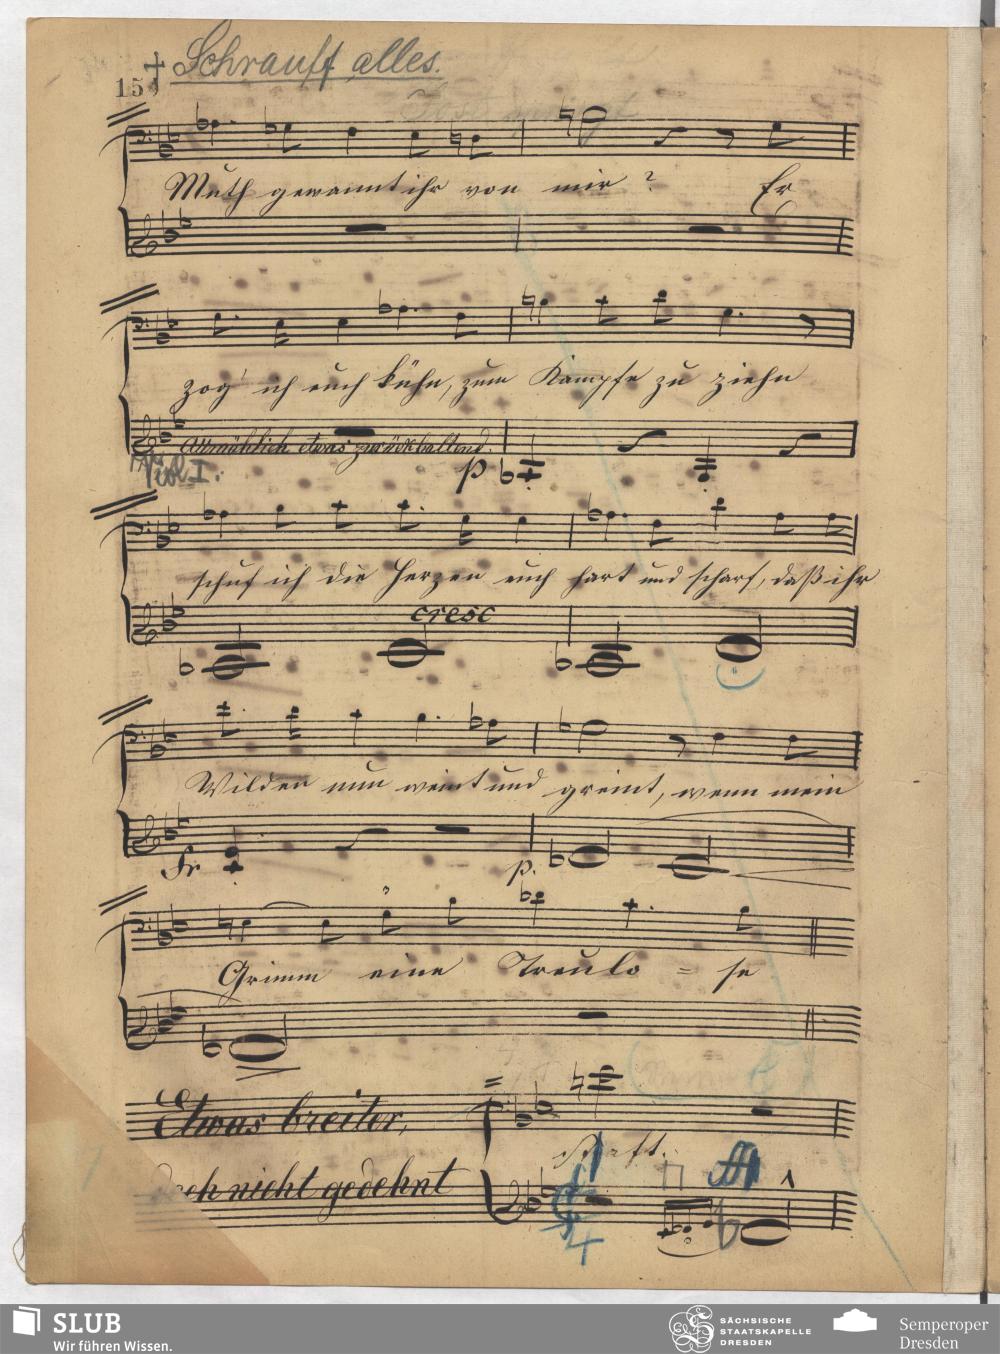 Schrauff alles.
154
Muth gewannt ihr von mir? Er
zog' ich euch kühn, zum Kampfe zu ziehn
Allmählich etwas zurückhaltend.
Viol I.
p
schuf ich die Herzen euch hart und scharf, daß ihr
cresc
Wilden nun weint und greint, wenn mein
p.
Grimm eine Treulo = se
Etwas breiter,
doch nicht gedehnt
straft.
ff
4
SLUB
Wir führen Wissen.
SÄCHSISCHE
STAATSKAPELLE
DRESDEN
Semperoper
Dresden